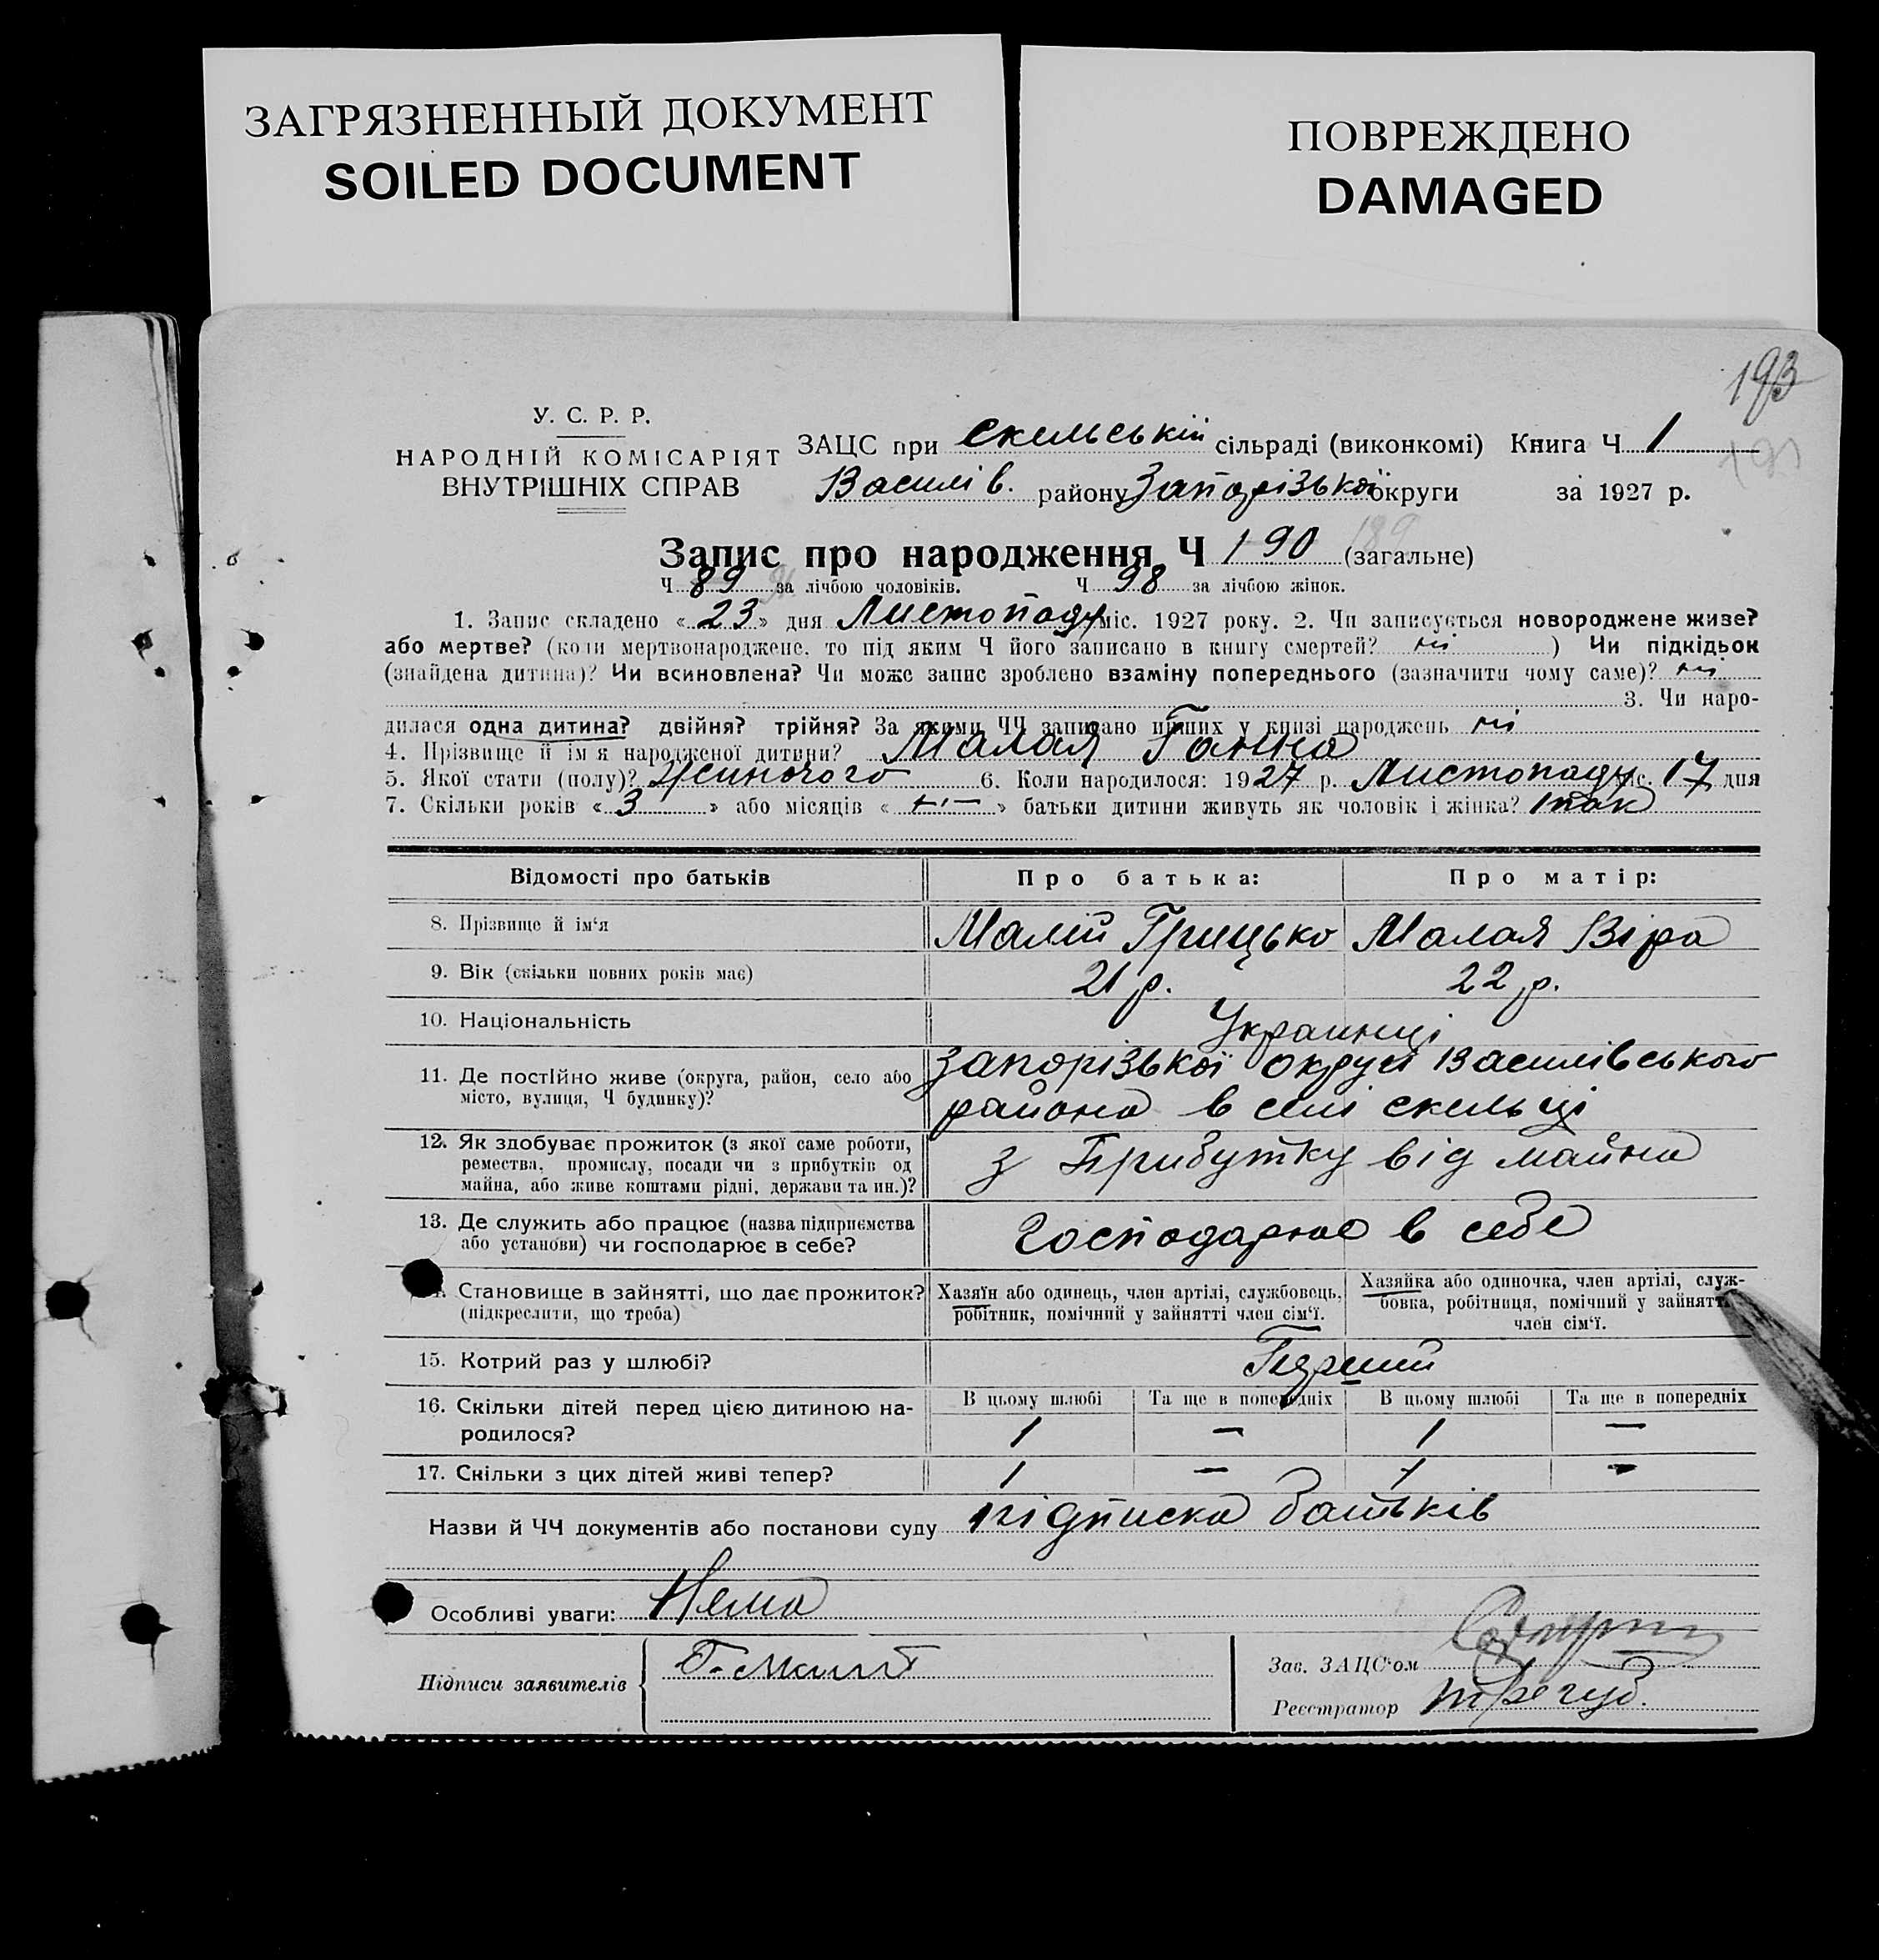 ЗАГРЯЗНЕННЫЙ ДОКУМЕНТ
SOILED DOCUMENT
ПОВРЕЖДЕНО
DAMAGED
193
У. С. Р. Р.
НАРОДНІЙ КОМІСАРІЯТ
ВНУТРІШНІХ СПРАВ
ЗАЦС при Скельській сільраді (виконкомі) Книга Ч 1
Василів. району Запорізької округи за 1927 р.
Запис про народження Ч 190 189 (загальне)
Ч 89 за лічбою чоловіків. Ч 98 за лічбою жінок.
1. Запис складено « 23 » дня Листопаду міс. 1927 року. 2. Чи записується новороджене живе?
або мертве? (коли мертвонароджене, то під яким Ч його записано в книгу смертей? ні ) Чи підкідьок
(знайдена дитина)? Чи всиновлена? Чи може запис зроблено взаміну попереднього (зазначити чому саме)? ні
3. Чи наро-
дилася одна дитина? двійня? трійня? За якими ЧЧ записано инших у книзі народжень ні
4. Прізвище й ім'я народженої дитини? Малая Ганна
5. Якої стати (полу)? жиночого 6. Коли народилося: 1927 р. Листопаду міс. 17 дня
7. Скільки років « 3 » або місяців « — » батьки дитини живуть як чоловік і жінка? так
Відомості про батьків Про батька: Про матір:
8. Прізвище й ім'я Малий Грицько Малая Віра
9. Вік (скільки повних років має) 21 р. 22 р.
10. Національність Украинці
11. Де постійно живе (округа, район, село або місто, вулиця, Ч будинку)?
Запорізької округи Василівського
района в селі скельці
12. Як здобуває прожиток (з якої саме роботи,
ремества, промислу, посади чи з прибутків од
майна, або живе коштами рідні, держави та ин.)?
з Прибутку від майна
13. Де служить або працює (назва підприємства
або установи) чи господарює в себе?
Господарює в себе
Становище в зайнятті, що дає прожиток?
(підкреслити, що треба)
Хазяїн або одинець, член артілі, службовець,
робітник, помічний у зайнятті член сім'ї.
Хазяйка або одиночка, член артілі, служ-
бовка, робітниця, помічний у зайнятті
член сім'ї.
15. Котрий раз у шлюбі? Перший
16. Скільки дітей перед цією дитиною на-
родилося?
В цьому шлюбі Та ще в попередніх В цьому шлюбі Та ще в попередніх
1 — 1 —
17. Скільки з цих дітей живі тепер? 1 — 1 —
Назви й ЧЧ документів або постанови суду підписка батьків
Особливі уваги: Нема
Підписи заявителів
Зав. ЗАЦС'ом
Реєстратор